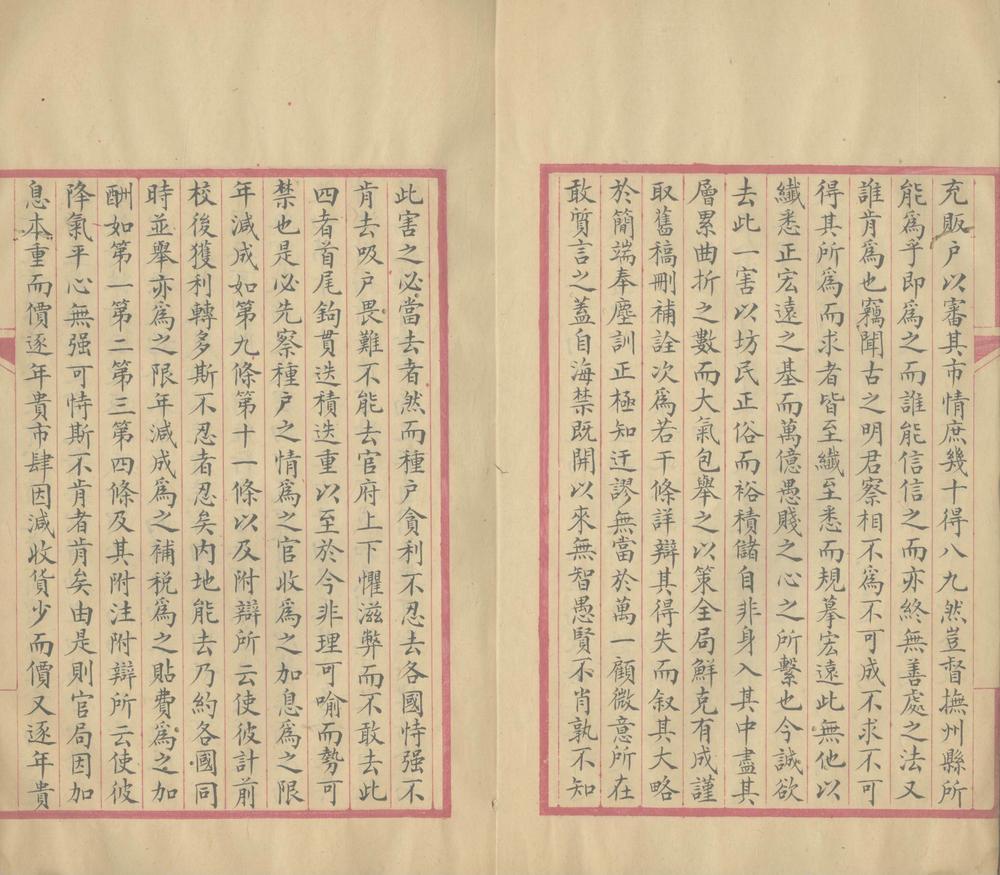 充販戶以審其市情庶幾十得八九然豈督撫州縣所
能為乎即為之而誰能信信之而亦終無善處之法又
誰肯為也竊聞古之明君察相不為不可成不求不可
得其所為而求者皆至纖至悉而規摹宏遠此無他以
纖悉正宏遠之基而萬億愚賤之心之所繫也今誠欲
去此一害以坊民正俗而裕積儲自非身入其中盡其
層累曲折之數而大氣包舉之以策全局鮮克有成謹
取舊稿刪補詮次為若干條詳辯其得失而叙其大略
於簡端奉塵訓正極知迂謬無當於萬一顧微意所在
敢質言之蓋自海禁既開以來無智愚賢不肖孰不知
此害之必當去者然而種戶貪利不忍去各國恃强不
肯去吸戶畏難不能去官府上下懼滋弊而不敢去此
四者首尾鉤貫迭積迭重以至於今非理可喻而勢可
禁也是必先察種戶之情為之官收為之加息為之限
年減成如第九條第十一條以及附辯所云使彼計前
校後獲利轉多斯不忍者忍矣內地能去乃約各國同
時並舉亦為之限年減成為之補税為之貼費為之加
酬如第一第二第三第四條及其附注附辯所云使彼
降氣平心無强可恃斯不肯者肯矣由是則官局因加
息本重而價逐年貴市肆因減收貨少而價又逐年貴